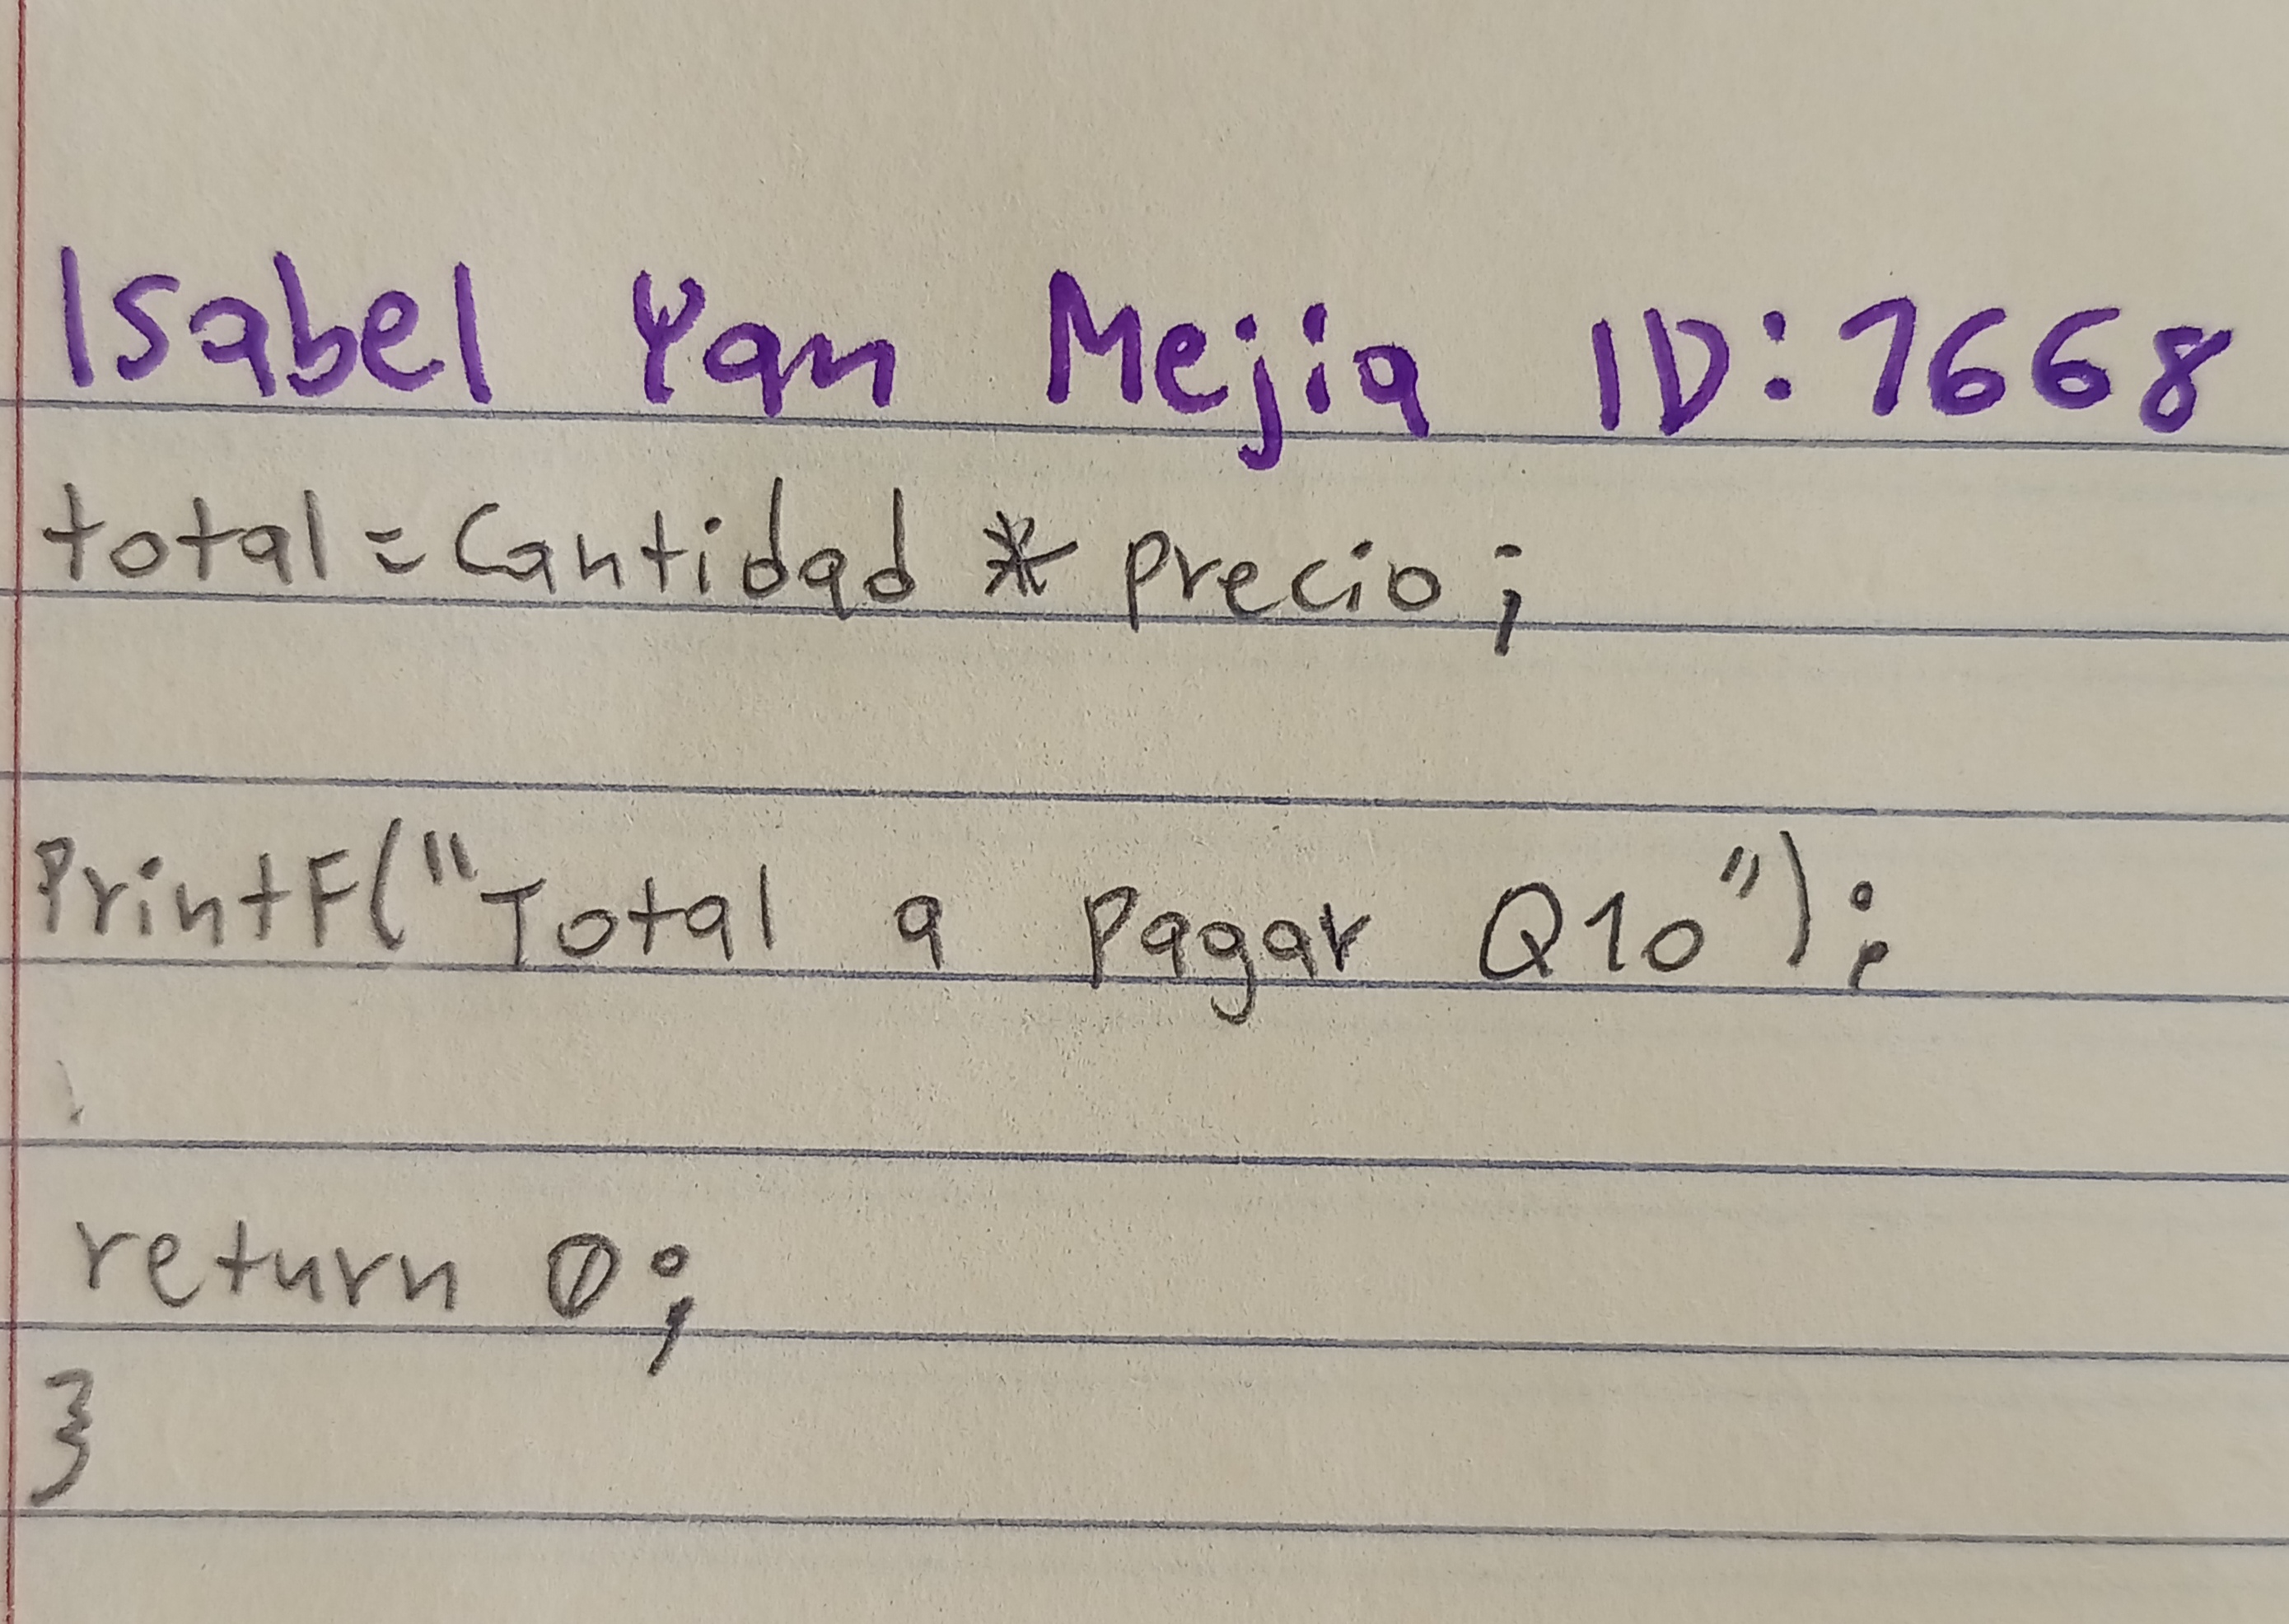 Isabel Yan Mejia ID: 1668
total = Cantidad * precio;
PrintF("Total a Pagar Q10");
return 0;
}